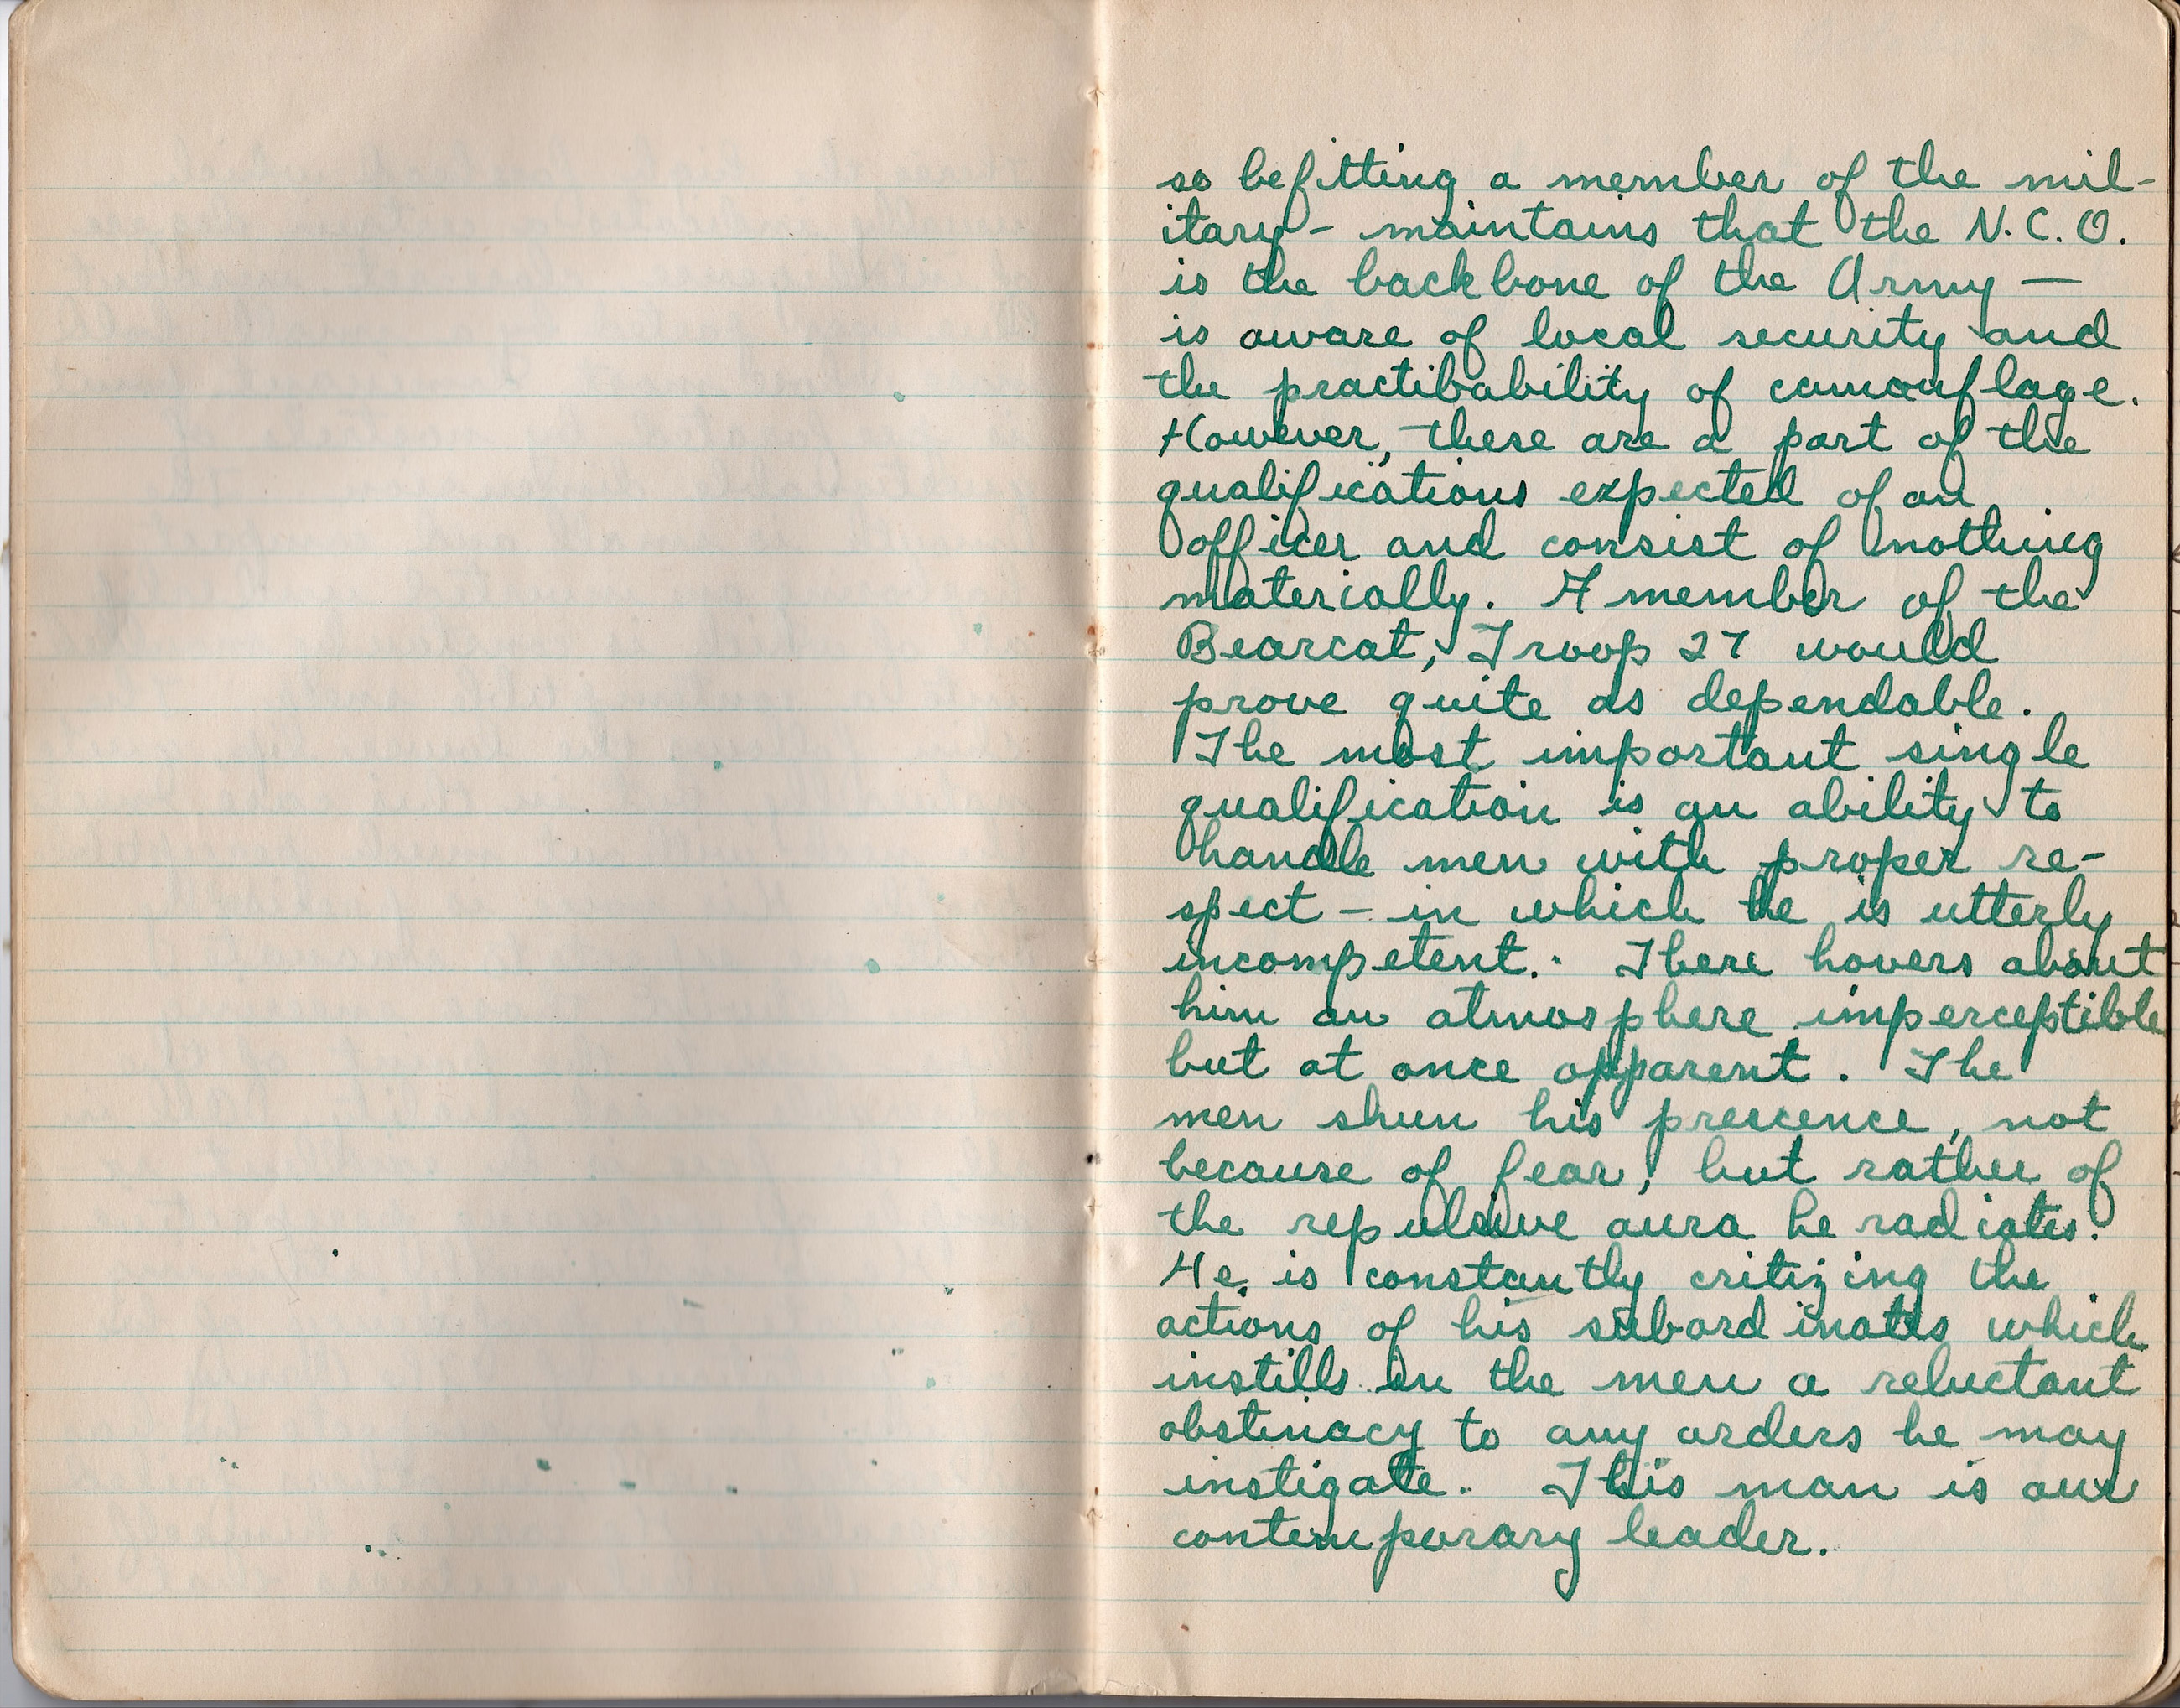 so befitting a member of the mil-
itary - maintains that the N.C.O.
is the backbone of the Army —
is aware of local security and
the practibability of camouflage.
However, these are a part of the
qualifications expected of an
officer and consist of nothing
materially. A member of the
Bearcat, Troop 27 would
prove quite as dependable.
The most important single
qualification is an ability to
handle men with proper re-
spect - in which he is utterly
incompetent. There hovers about
him an atmosphere imperceptible
but at once apparent. The
men shun his prescence, not
because of fear, but rather of
the repulsive aura he radiates.
He is constantly critizing the
actions of his subordinates which
instills in the men a reluctant
obstinacy to any orders he may
instigate. This man is our
contemporary leader.